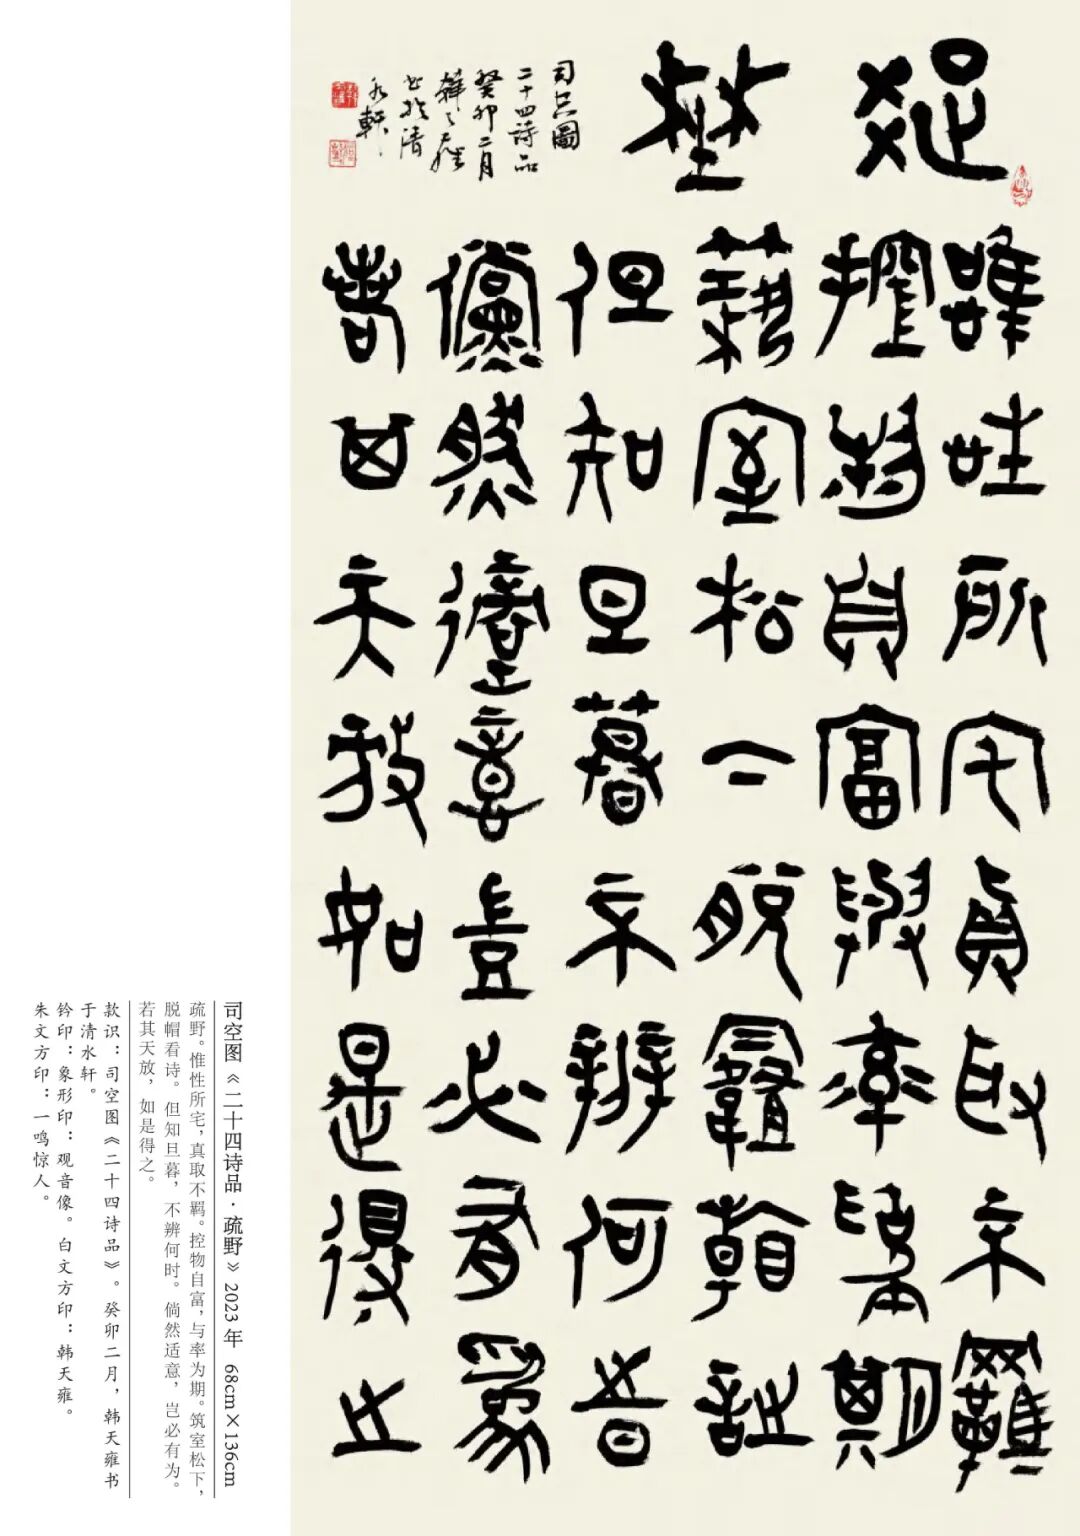 疏壄
惟性所宅真取不羈
控物自富與率為期
築室松下脱帽看詩
但知旦暮不辨何時
儻然適意豈必有為
若其天放如是得之
司空圖
二十四詩品
癸卯二月
韓天雍
書於清
水軒
司空图《二十四诗品·疏野》2023年 68cm×136cm
疏野。惟性所宅，真取不羁。控物自富，与率为期。筑室松下，
脱帽看诗。但知旦暮，不辨何时。倘然适意，岂必有为。
若其天放，如是得之。
款识：司空图《二十四诗品》。癸卯二月，韩天雍书
于清水轩。
钤印：象形印：观音像。白文方印：韩天雍。
朱文方印：一鸣惊人。